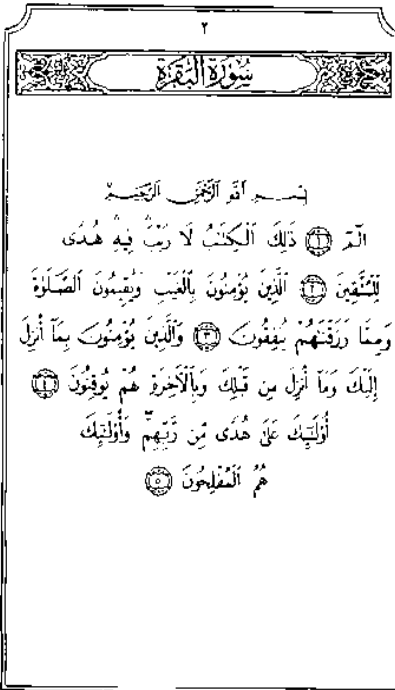 ٢
سُورَةُ الْبَقَرَةِ
بِسْمِ اللَّهِ الرَّحْمَٰنِ الرَّحِيمِ
الٓمٓ ١ ذَٰلِكَ الْكِتَٰبُ لَا رَيْبَ ۛ فِيهِ ۛ هُدًى
لِّلْمُتَّقِينَ ٢ الَّذِينَ يُؤْمِنُونَ بِالْغَيْبِ وَيُقِيمُونَ الصَّلَوٰةَ
وَمِمَّا رَزَقْنَٰهُمْ يُنفِقُونَ ٣ وَالَّذِينَ يُؤْمِنُونَ بِمَآ أُنزِلَ
إِلَيْكَ وَمَآ أُنزِلَ مِن قَبْلِكَ وَبِالْأَخِرَةِ هُمْ يُوقِنُونَ ٤
أُولَٰٓئِكَ عَلَىٰ هُدًى مِّن رَّبِّهِمْ وَأُولَٰٓئِكَ
هُمُ الْمُفْلِحُونَ ٥